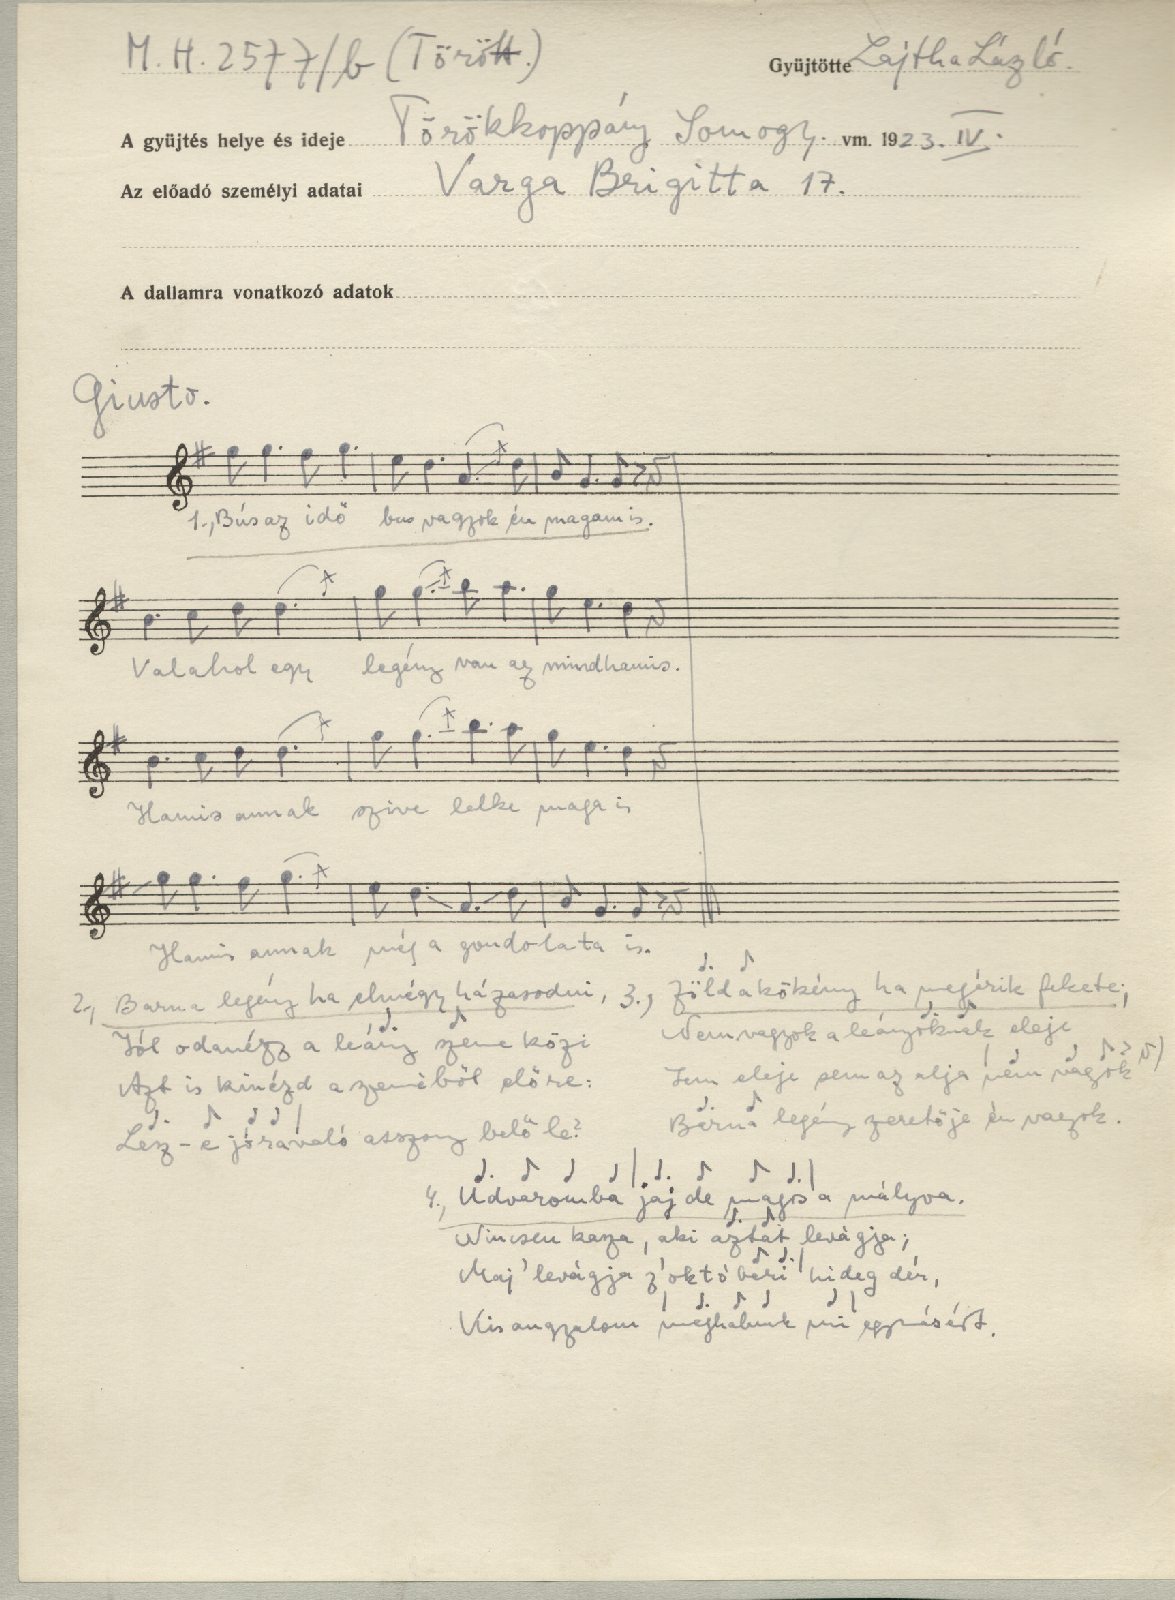 M. H. 2577/b (Törött.)
Gyüjtötte Lajtha László.
A gyüjtés helye és ideje Törökkoppány Somogy. vm. 1923. IV.
Az előadó személyi adatai Varga Brigitta 17.
A dallamra vonatkozó adatok
Giusto.
1., Bús az idő bus vagyok én magam is.
Valahol egy legény van az mind hamis.
Hamis annak szive lelke maga is
Hamis annak még a gondolata is.
2., Barna legény ha elmégy házasodni,
Jól odanézz a leány szeme közi
Azt is kinézd a szeméből előre:
Lesz-e jóravaló asszony belőle?
3., Zöld a kökény ha megérik fekete;
Nem vagyok a leányoknak eleje
Sem eleje sem az alja nem vagyok
Barna legény zeretője én vagyok.
4., Udvaromba jaj de magos a mályva.
Nincsen kasza, aki aztat levágja;
Maj' levágja z'októberi hideg dér,
Kis angyalom meghalunk mi egymásért.